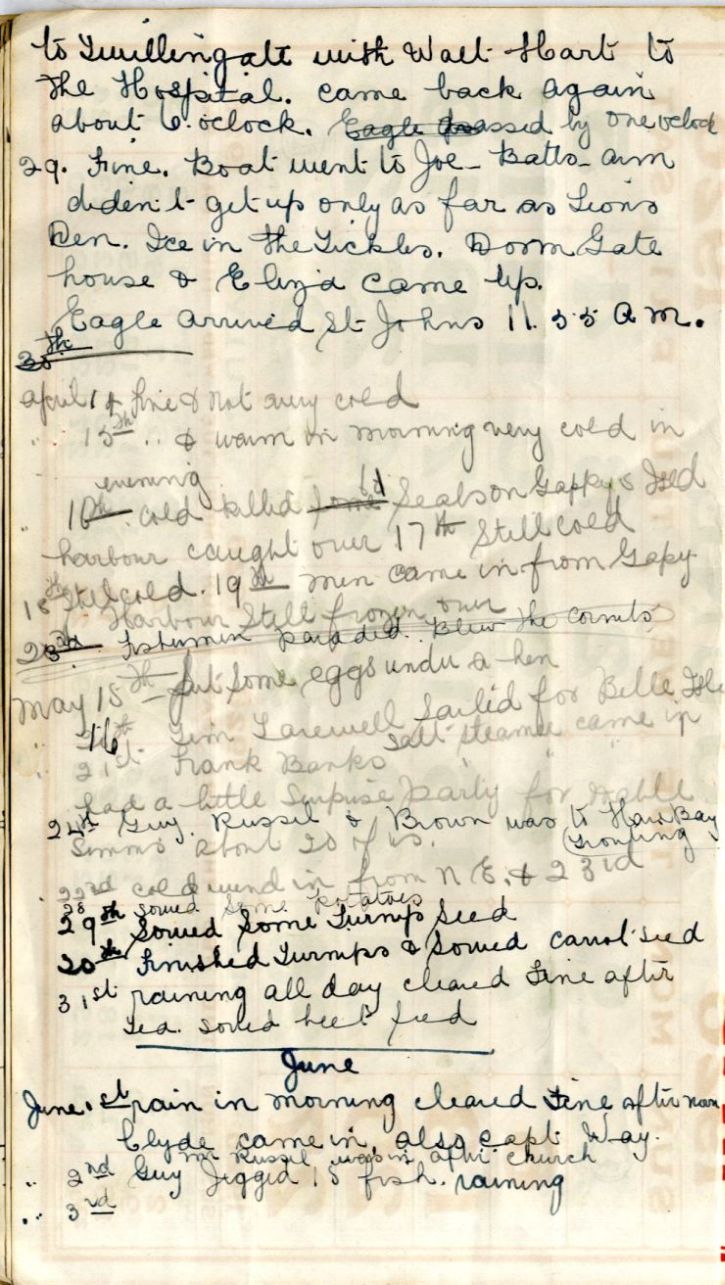 to Twillingate with Walt Hart to
the Hospital. came back again
about 6. oclock. Eagle passed by one oclock
29. Fine. Boat went to Joe- Batts- arm
diden't get up only as far as Lions
Den. Ice in the Tickles. Dorm Gate
house & Eliza came up.
Eagle arrived St Johns 11.55 a m.
30th
april 14 fine & not very cold
" 15th " & warm in morning very cold in
evening
16th cold killed some 61 Seals on Gappy & Isld
harbour caught over 17th Still cold
18th Still cold. 19th men came in from Gapy
Harbour Still frozen over
23rd Fishermen paraded. Blew the Cornets
May 15th put some eggs under a hen
" 16th Jim Farewell Sailed for Belle Isle
" 21st Frank Banks Salt Steamer came in
had a little Surprise Party for
24th Guy. Russel & Brown was to Hare Bay
Simms about 20 of us. (Trouting
22nd cold wind in from N E. & 23rd
28 sowed some potatoes
29th Sowed Some Turnip Seed
20th Finished Turnips & Sowed carrot seed
31st raining all day cleared Fine after
Tea. Sowed beet seed
June
June 1st rain in morning cleared Fine after noon
Clyde came in, also Capt Way.
Mr Russel was in after church
" 2nd Guy Jigged 15 fish. raining
" 3rd